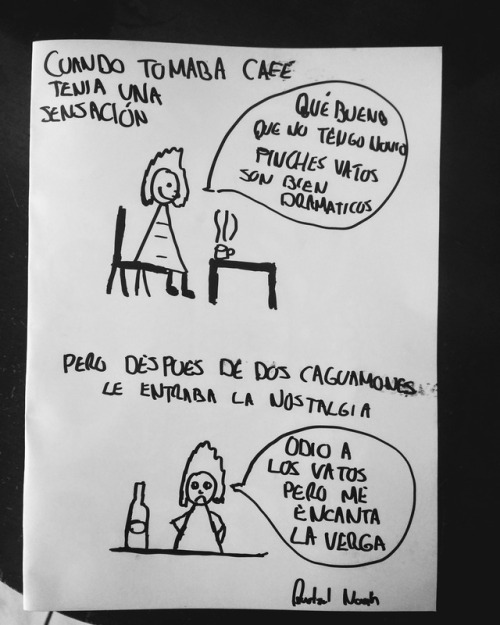 CUANDO TOMABA CAFÉ
TENIA UNA
SENSACIÓN
QUÉ BUENO
QUE NO TENGO NOVIO
PINCHES VATOS
SON BIEN
DRAMATICOS
PERO DESPUES DE DOS CAGUAMONES
LE ENTRABA LA NOSTALGIA
ODIO A
LOS VATOS
PERO ME
ENCANTA
LA VERGA